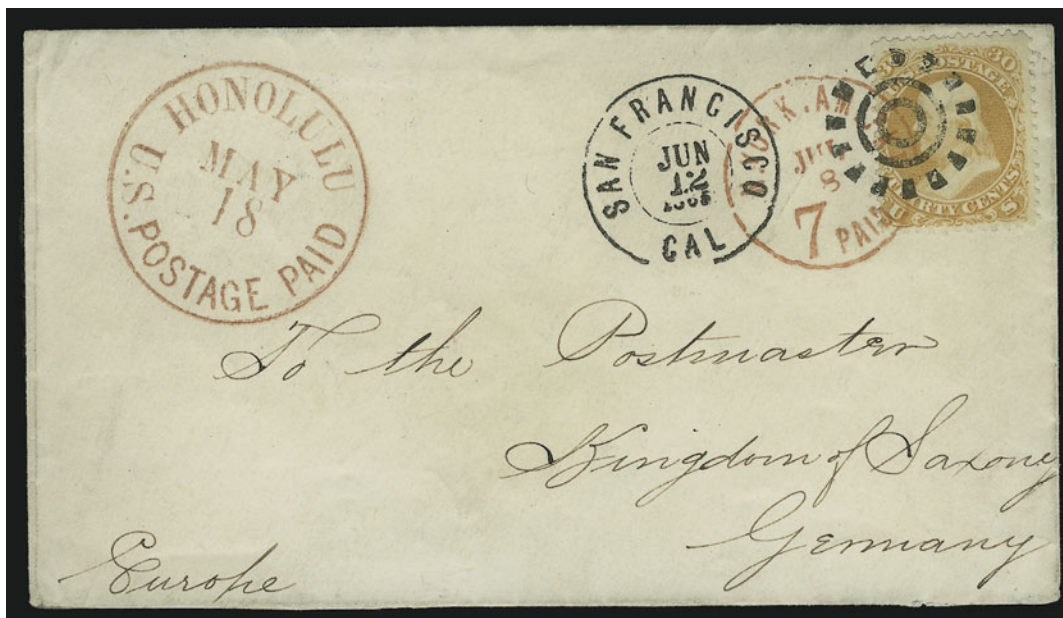 HONOLULU
U.S. POSTAGE PAID
MAY
18
SAN FRANCISCO
CAL
JUN
12
YORK. AM
8
7
PAID
30
POSTAGE
THIRTY CENTS
U S
To the Postmaster
Kingdom of Saxony
Germany
Europe